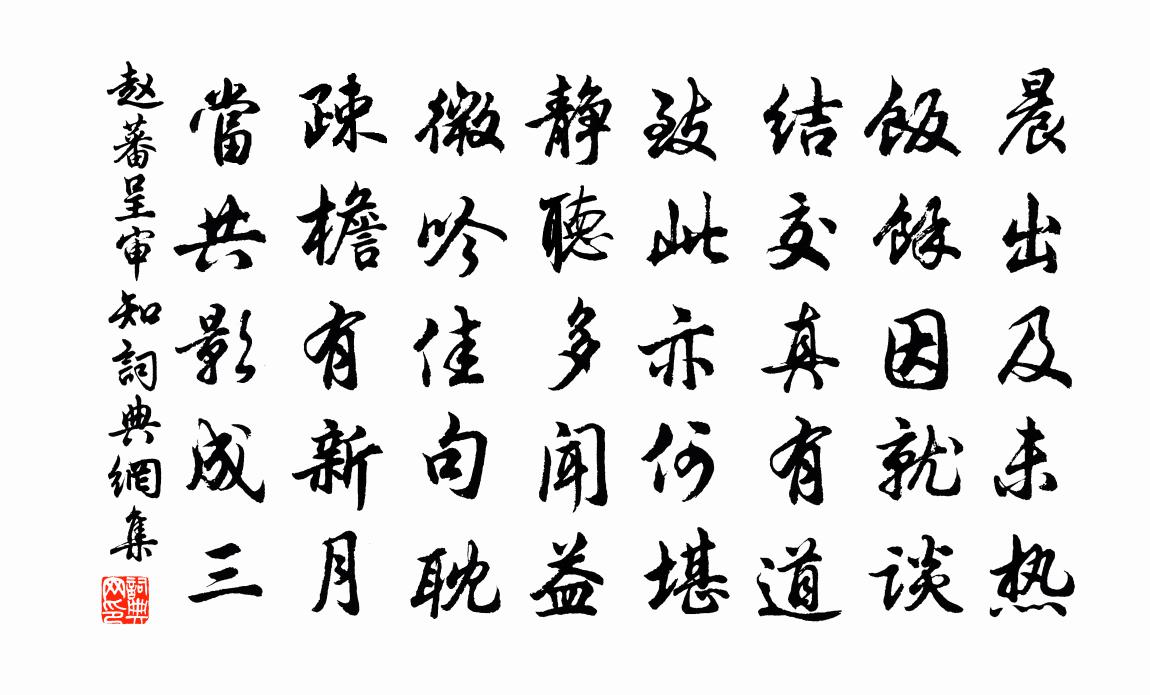 晨出及未热
飯餘因就談
结交真有道
致此亦何堪
静聽多闻益
微吟佳句耽
疎檐有新月
當共影成三
赵蕃呈审知詞典網集
詞典
网印